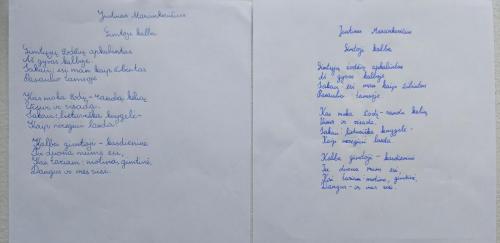 Justinas Marcinkevičius
Gimtoji kalba
Gimtųjų žodžių apkabintas
Aš gyvas kalboje.
Sakau: esi man kaip žibintas
Pasaulio tamsoje.
Kas moka žodį - randa kelią
Visur ir visada.
Sakau: lietuviška knygelė -
Kaip neregiui lazda.
Kalba gimtoji - kasdieninė
Tu duona mums esi,
Kai tariam - motina, gimtinė,
Dangus ir mes visi.
Justinas Marcinkevičius
Gimtoji kalba
Gimtųjų žodžių apkabintas
Aš gyvas kalboje
Sakau: esi man kaip žibintas
Pasaulio tamsoje.
Kas moka žodį - randa kelią
Visur ir visada.
Sakau: lietuviška knygelė -
Kaip neregiui lazda.
Kalba gimtoji - kasdieninė
Tu duona mum esi,
Kai tariam - motina, gimtinė,
Dangus - ir mes visi.